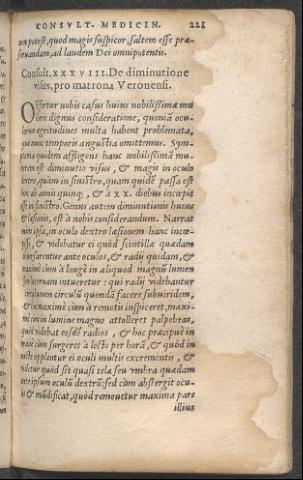 CONSVLT. MEDICIN. 221
un potest, quod magis suspicor, saltem esse præ-
seruandam, ad laudem Dei omnipotentis.
Consult. XXXVIII. De diminutione
visus, pro matrona Veronensi.
Offertur nobis casus huius nobilissimæ mu
dignus consideratione, quoniã ocu-
ægritudines multa habent problemata,
nunc temporis angustia omittemus. Sym-
quidem affligens hanc nobilissimã mu
est diminutio visus, & magis in oculo
quàm in sinistro, quam quidẽ passa est
ab annis quinq;, & à xx. diebus incœpit
in sinistro. Genus autem diminutionis huius
& læsionis, est à nobis considerandum. Narrat
ipsa, in oculo dextro læsionem hanc incœ-
& videbatur ei quòd scintillæ quædam
ante oculos, & radij quidam, &
cùm à longè in aliquod magnũ lumen
intuebatur: qui radij videbantur
circulum quendã facere subuiridem,
& maximè cùm à remotis inspiceret, maxi-
in lumine magno attolleret palpebras,
videbat eosdẽ radios, & hoc præcipuè in
cùm surgeret à lecto per horã, & quòd in
oculi multis excrementis, &
quòd sit quasi telæ seu vmbra quædam
ante ipsum oculũ dextrũ: sed cùm abstergit ocu-
& mũdificat, quòd remouetur maxima pars
illius